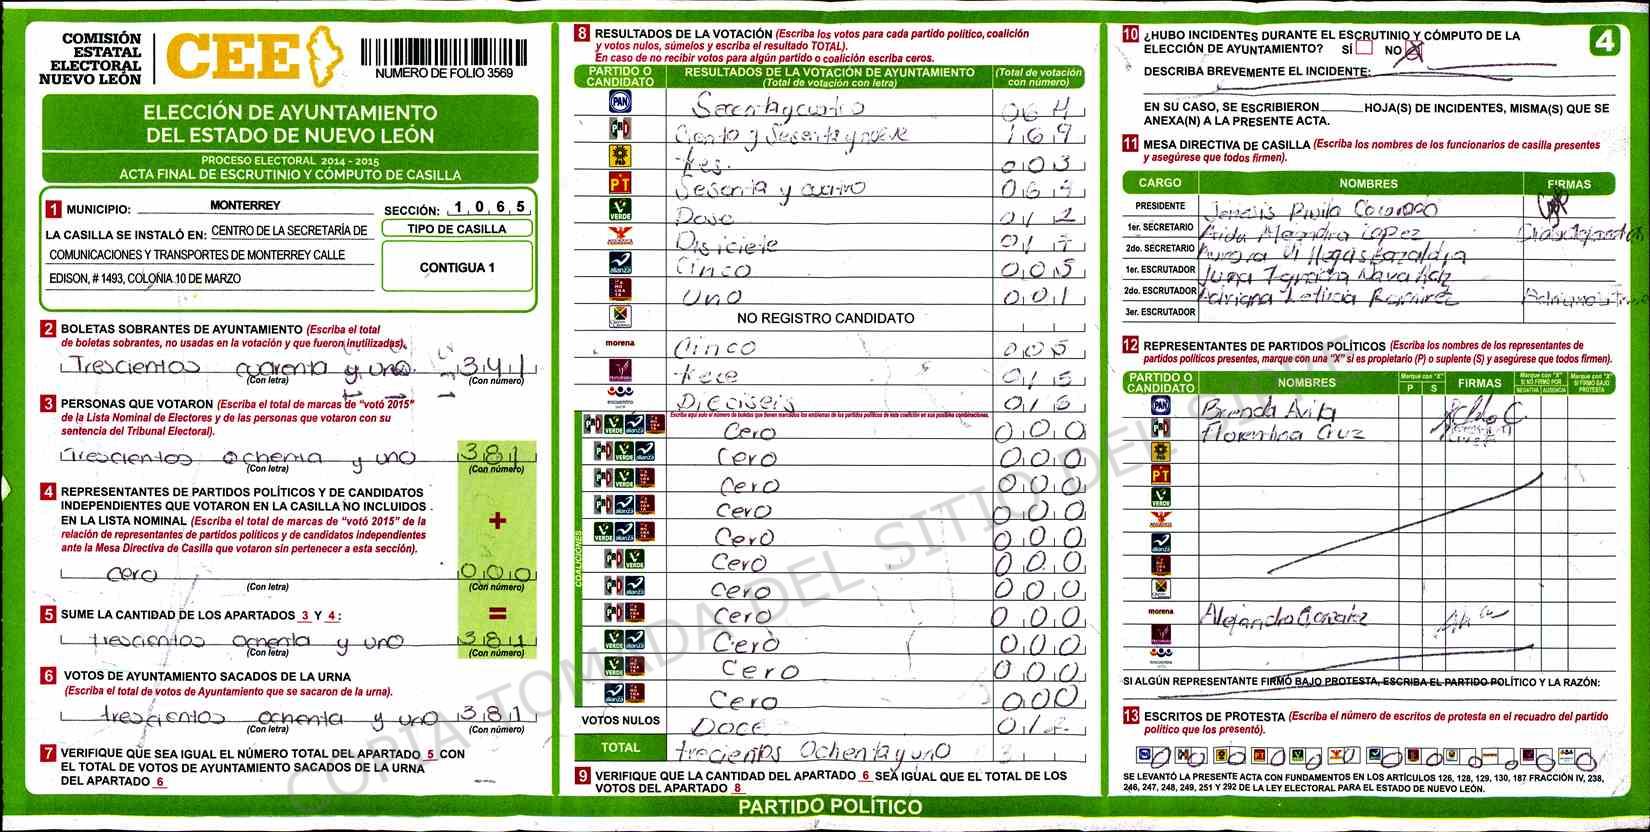 COMISIÓN
ESTATAL
ELECTORAL
NUEVO LEÓN
CEE
NUMERO DE FOLIO 3569
ELECCIÓN DE AYUNTAMIENTO
DEL ESTADO DE NUEVO LEÓN
PROCESO ELECTORAL 2014 - 2015
ACTA FINAL DE ESCRUTINIO Y CÓMPUTO DE CASILLA
1 MUNICIPIO: MONTERREY SECCIÓN: 1 0 6 5
LA CASILLA SE INSTALÓ EN: CENTRO DE LA SECRETARÍA DE
COMUNICACIONES Y TRANSPORTES DE MONTERREY CALLE
EDISON, # 1493, COLONIA 10 DE MARZO
TIPO DE CASILLA
CONTIGUA 1
2 BOLETAS SOBRANTES DE AYUNTAMIENTO (Escriba el total
de boletas sobrantes, no usadas en la votación y que fueron inutilizadas).
Trescientos cuarenta y uno 341
(Con letra) (Con número)
3 PERSONAS QUE VOTARON (Escriba el total de marcas de "votó 2015"
de la Lista Nominal de Electores y de las personas que votaron con su
sentencia del Tribunal Electoral).
trescientos ochenta y uno 381
(Con letra) (Con número)
4 REPRESENTANTES DE PARTIDOS POLÍTICOS Y DE CANDIDATOS
INDEPENDIENTES QUE VOTARON EN LA CASILLA NO INCLUIDOS
EN LA LISTA NOMINAL (Escriba el total de marcas de "votó 2015" de la
relación de representantes de partidos políticos y de candidatos independientes
ante la Mesa Directiva de Casilla que votaron sin pertenecer a esta sección).
+
cero 000
(Con letra) (Con número)
5 SUME LA CANTIDAD DE LOS APARTADOS 3 Y 4: =
trescientos ochenta y uno 381
(Con letra) (Con número)
6 VOTOS DE AYUNTAMIENTO SACADOS DE LA URNA
(Escriba el total de votos de Ayuntamiento que se sacaron de la urna).
trescientos ochenta y uno 381
(Con letra) (Con número)
7 VERIFIQUE QUE SEA IGUAL EL NÚMERO TOTAL DEL APARTADO 5 CON
EL TOTAL DE VOTOS DE AYUNTAMIENTO SACADOS DE LA URNA
DEL APARTADO 6
8 RESULTADOS DE LA VOTACIÓN (Escriba los votos para cada partido político, coalición
y votos nulos, súmelos y escriba el resultado TOTAL).
En caso de no recibir votos para algún partido o coalición escriba ceros.
PARTIDO O CANDIDATO RESULTADOS DE LA VOTACIÓN DE AYUNTAMIENTO (Total de votación con letra) (Total de votación con número)
PAN Sesenta y cuatro 064
PRI Ciento y Sesenta y nueve 169
PRD tres. 003
PT Sesenta y cuatro 064
VERDE Doce 012
Disiciete 017
alianza Cinco 005
Uno 001
NO REGISTRO CANDIDATO
morena Cinco 005
trece 013
encuentro social Dieciseis 016
Escriba aquí solo el número de boletas que tienen marcados los emblemas de los partidos políticos de esta coalición en sus posibles combinaciones.
COALICIONES
Cero 000
Cero 000
Cero 000
Cero 000
Cero 000
Cero 000
Cero 000
Cero 000
Cero 000
Cero 000
Cero 000
VOTOS NULOS Doce 012
TOTAL trecientos Ochenta y uno 3
9 VERIFIQUE QUE LA CANTIDAD DEL APARTADO 6 SEA IGUAL QUE EL TOTAL DE LOS
VOTOS DEL APARTADO 8
PARTIDO POLÍTICO
10 ¿HUBO INCIDENTES DURANTE EL ESCRUTINIO Y CÓMPUTO DE LA
ELECCIÓN DE AYUNTAMIENTO? SÍ NO X
4
DESCRIBA BREVEMENTE EL INCIDENTE:
EN SU CASO, SE ESCRIBIERON HOJA(S) DE INCIDENTES, MISMA(S) QUE SE
ANEXA(N) A LA PRESENTE ACTA.
11 MESA DIRECTIVA DE CASILLA (Escriba los nombres de los funcionarios de casilla presentes
y asegúrese que todos firmen).
CARGO NOMBRES FIRMAS
PRESIDENTE
1er. SECRETARIO Aida Alejandra Lopez
2do. SECRETARIO Aurora Villegas
1er. ESCRUTADOR Nava
2do. ESCRUTADOR Adriana Leticia Ramirez
3er. ESCRUTADOR
12 REPRESENTANTES DE PARTIDOS POLÍTICOS (Escriba los nombres de los representantes de
partidos políticos presentes, marque con una "X" si es propietario (P) o suplente (S) y asegúrese que todos firmen).
PARTIDO O CANDIDATO NOMBRES Marque con "X" P S FIRMAS Marque con "X" SI NO FIRMÓ POR NEGATIVA AUSENCIA Marque con "X" SI FIRMÓ BAJO PROTESTA
PAN Brenda Avila
PRI Florentina Cruz
PRD
PT
VERDE
alianza
morena Alejandra Gonzalez
SI ALGÚN REPRESENTANTE FIRMÓ BAJO PROTESTA, ESCRIBA EL PARTIDO POLÍTICO Y LA RAZÓN:
13 ESCRITOS DE PROTESTA (Escriba el número de escritos de protesta en el recuadro del partido
político que los presentó).
SE LEVANTÓ LA PRESENTE ACTA CON FUNDAMENTOS EN LOS ARTÍCULOS 126, 128, 129, 130, 187 FRACCIÓN IV, 238,
246, 247, 248, 249, 251 Y 292 DE LA LEY ELECTORAL PARA EL ESTADO DE NUEVO LEÓN.
COPIA TOMADA DEL SITIO DEL SIPRE